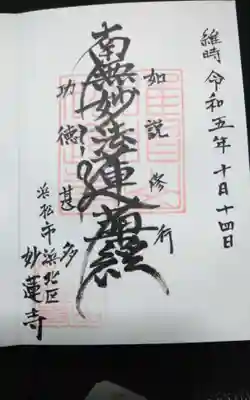 維時 令和五年十月十四日
如説修行
南無妙法蓮華経
功徳甚多
浜松市浜北区
妙蓮寺